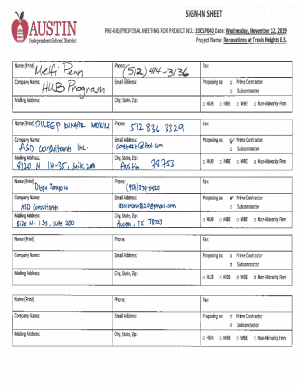 AUSTIN
Independent School District
SIGN-IN SHEET
PRE-BID/PROPOSAL MEETING FOR PROJECT NO.: 20CSP042 Date: Wednesday, November 12, 2019
Project Name: Renovations at Travis Heights E.S.
Name (Print) Phone: Fax:
Melfi Penn (512) 414-3136
Company Name: Email Address: Proposing as: Prime Contractor
HUB Program Subcontractor
Mailing Address: City, State, Zip: HUB MBE WBE Non-Minority Firm
Name (Print) DILEEP KUMAR Phone: 512 836 3329 Fax:
Company Name: Email Address: Proposing as: Prime Contractor
ASD Consultants Inc. Subcontractor
Mailing Address: City, State, Zip:
8120 N IH-35, Austin 78753 HUB MBE WBE Non-Minority Firm
Name (Print) Phone: Fax:
Diego
Company Name: Email Address: Proposing as: Prime Contractor
Consultants Subcontractor
Mailing Address: City, State, Zip:
8120 N. I35, Austin, TX HUB MBE WBE Non-Minority Firm
Name (Print) Phone: Fax:
Company Name: Email Address: Proposing as: Prime Contractor
Subcontractor
Mailing Address: City, State, Zip: HUB MBE WBE Non-Minority Firm
Name (Print) Phone: Fax:
Company Name: Email Address: Proposing as: Prime Contractor
Subcontractor
Mailing Address: City, State, Zip: HUB MBE WBE Non-Minority Firm